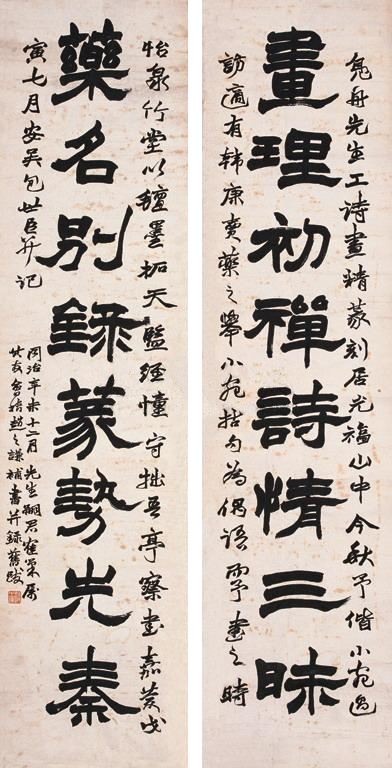 舟先生工詩畫精篆刻居光福山中今秋予偕小宛過
畫理初禪詩情三昧
訪適有韩康賣藥之舉小宛拈句為偶語予書之時
怡泉竹堂以墨拓天監經幢守拙吾亭察書嘉慶戊
藥名別錄篆勢先秦
寅七月安吴包世臣并記
同治辛未十二月先生嗣君巢屬
其友會稽趙之謙補書并録舊跋